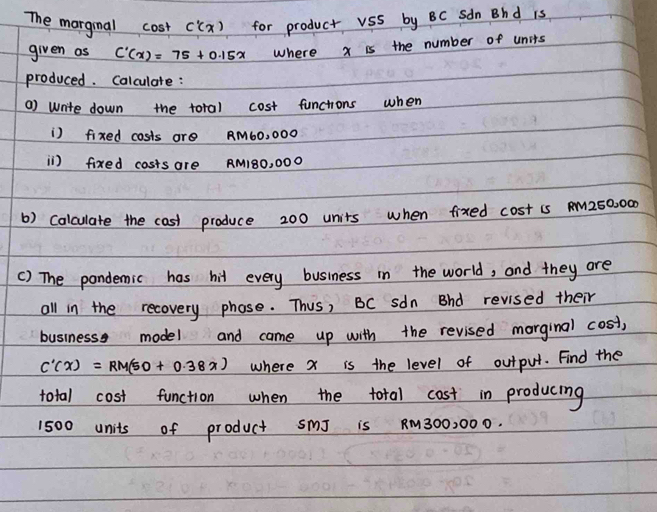 The marginal cost C'(x) for product VSS by BC Sdn Bhd is
given as C'(x) = 75 + 0.15x where x is the number of units
produced. Calculate :
a) Write down the total cost functions when
i) fixed costs are RM60,000
ii) fixed costs are RM180,000
b) Calculate the cost produce 200 units when fixed cost is RM250,000
c) The pandemic has hit every business in the world, and they are
all in the recovery phase. Thus, BC Sdn Bhd revised their
business model and came up with the revised marginal cost,
C'(x) = RM(50 + 0.38x) where x is the level of output. Find the
total cost function when the total cost in producing
1500 units of product SMJ is RM300,000.